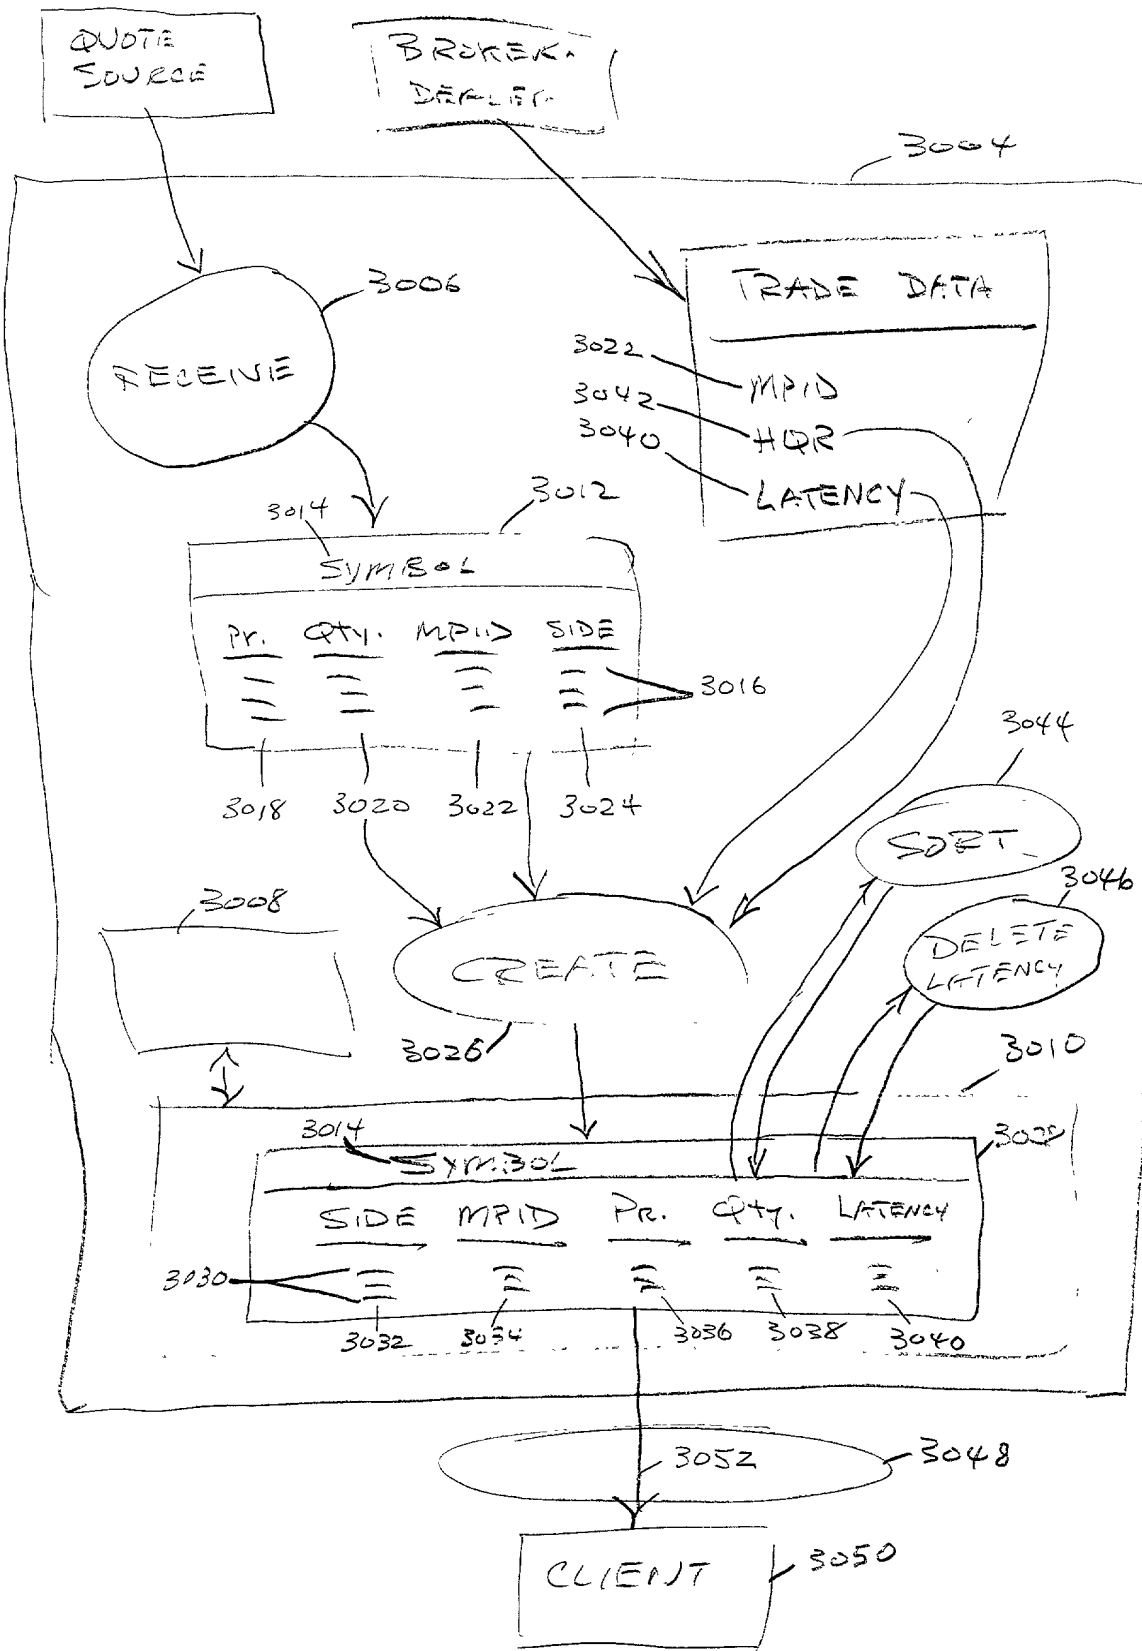 QUOTE
SOURCE
BROKER-
DEALER
3004
3006
RECEIVE
TRADE DATA
3022
MPID
3042
HQR
3040
LATENCY
3012
3014
SYMBOL
Pr. Qty. MPID SIDE
3016
3018 3020 3022 3024
3044
SORT
3046
DELETE
LATENCY
3008
CREATE
3026
3010
3014
SYMBOL
SIDE MPID Pr. Qty. LATENCY
3030
3032 3034 3036 3038 3040
3052
3048
CLIENT
3050